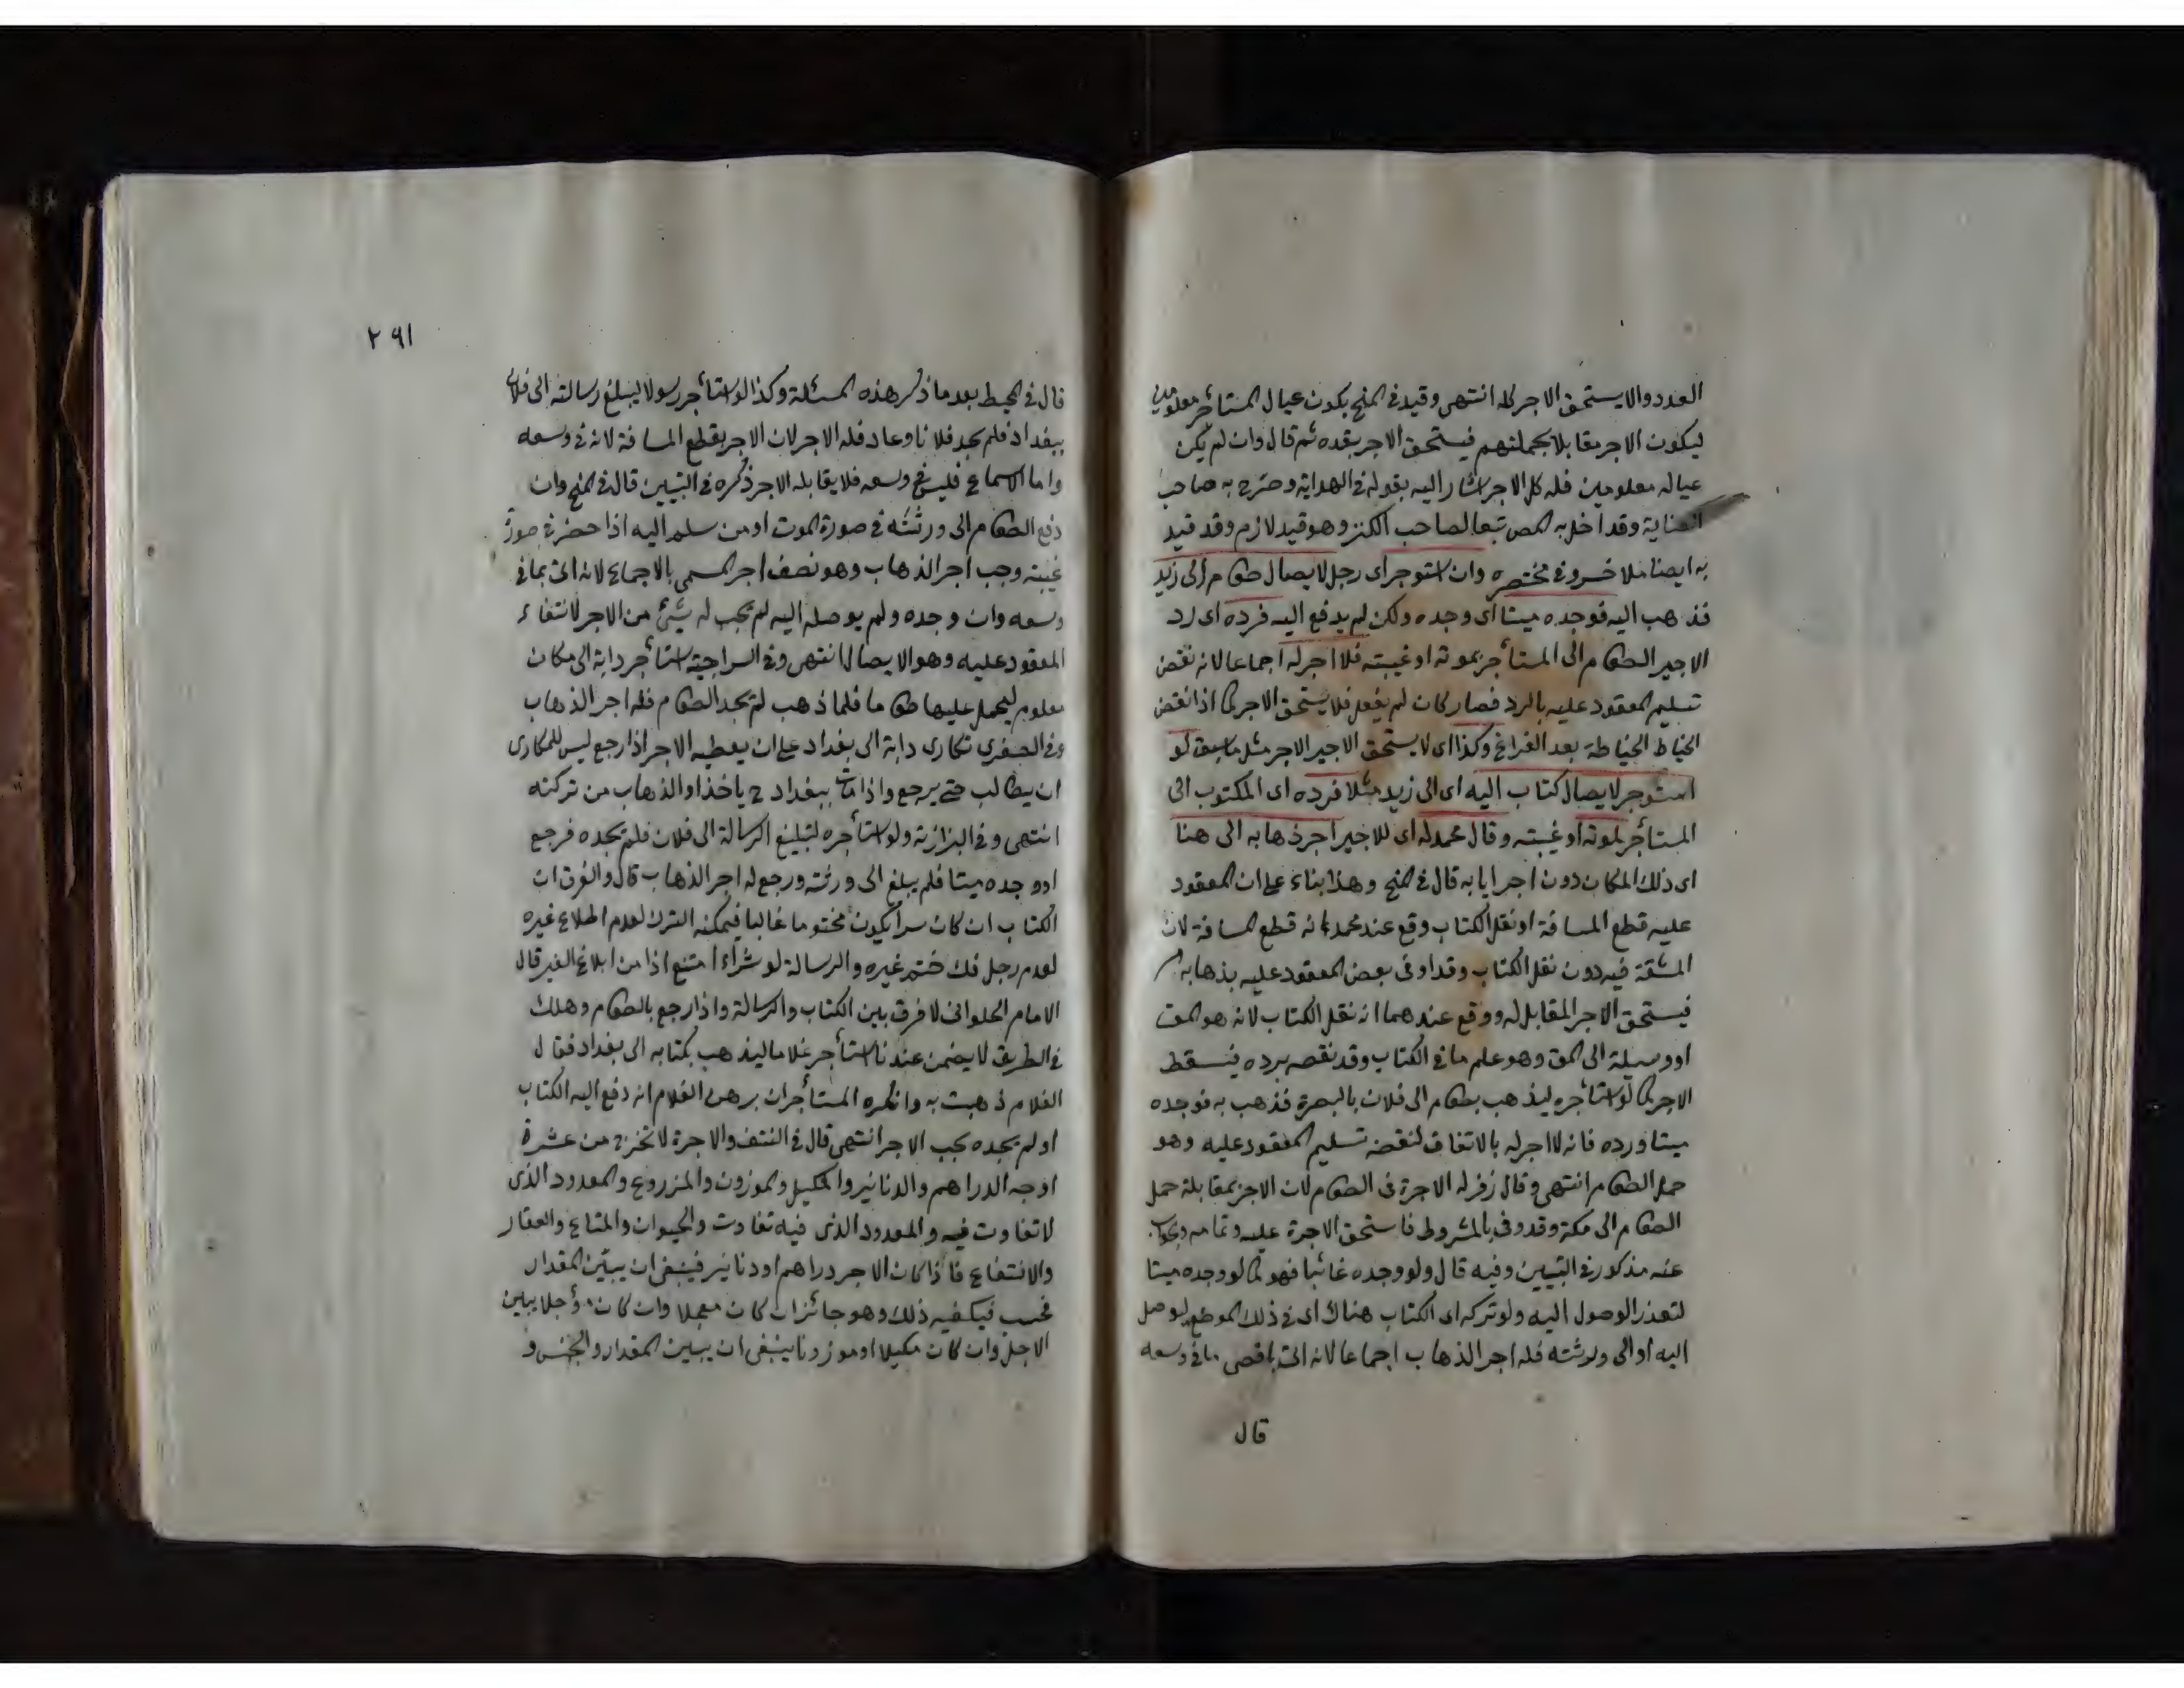 العدد والا يستحق الاجر كله انتهى وقيد في المنح بكون عيال المستأجر معلومين
ليكون الاجر مقابلا بجملتهم فيستحق الاجر بقدره ثم قال وان لم يكن
عياله معلومين فله كل الاجر اشار اليه بقوله في الهداية وصرح به صاحب
العناية وقد اخل به المص تبعا لصاحب الكنز وهو قيد لازم وقد قيد
به ايضا ملا خسرو في مختصره وان استوجر اى رجل لايصال طعام الى زيد
فذهب اليه فوجده ميتا اى وجده ولكن لم يدفع اليه فرده اى رد
الاجير الطعام الى المستأجر بموته او غيبته فلا اجر له اجماعا لانه نقض
تسليم المعقود عليه بالرد فصار كان لم يفعل فلا يستحق الاجر كما اذا نقض
الخياط الخياطة بعد الفراغ وكذا اى لا يستحق الاجير الاجر مثل ما سبق لو
استوجر لايصال كتاب اليه اى الى زيد مثلا فرده اى المكتوب الى
المستأجر لموته او غيبته وقال محمد له اى للاجير اجر ذهابه الى هنا
اى ذلك المكان دون اجر ايابه قال في المنح وهذا بناء على ان المعقود
عليه قطع المسافة او نقل الكتاب وقع عند محمد انه قطع المسافة لان
المشقة فيه دون نقل الكتاب وقد اوفى بعض المعقود عليه بذهابه
فيستحق الاجر المقابل له ووقع عندهما انه نقل الكتاب لانه هو المق
او وسيلة الى المق وهو علم ما في الكتاب وقد نقصه برده فيسقط
الاجر كما لو استأجره ليذهب بطعام الى فلان بالبصرة فذهب به فوجده
ميتا ورده فانه لا اجر له بالاتفاق لنقضه تسليم المعقود عليه وهو
حمل الطعام انتهى وقال زفر له الاجرة في الطعام لان الاجر بمقابلة حمل
الطعام الى مكة وقد وفى بالمشروط فاستحق الاجرة عليه وتمامه وجوابه
عنه مذكور في التبيين وفيه قال ولو وجده غائبا فهو كما لو وجده ميتا
لتعذر الوصول اليه ولو تركه اى الكتاب هناك اى في ذلك الموضع ليوصل
اليه او الى ورثته فله اجر الذهاب اجماعا لانه اتى باقصى ما في وسعه
قال
٢٩١
قال في المحيط بعد ما ذكر هذه المسئلة وكذا لو استأجر رسولا ليبلغ رسالته الى فلان
ببغداد فلم يجد فلانا وعاد فله الاجر لان الاجر بقطع المسافة لانه في وسعه
واما الاسماع فليس في وسعه فلا يقابله الاجر ذكره في التبيين قال في المنح وان
دفع الطعام الى ورثته في صورة الموت او من سلم اليه اذا حضر في صورة
غيبته وجب اجر الذهاب وهو نصف اجر المسمى بالاجماع لانه اتى بما في
وسعه وان وجده ولم يوصله اليه لم يجب له شئ من الاجر لانتفاء
المعقود عليه وهو الايصال انتهى وفي السراجية استأجر دابة الى مكان
معلوم ليحمل عليها طعاما فلما ذهب لم يجد الطعام فله اجر الذهاب
وفي الصغرى تكارى دابة الى بغداد على ان يعطيه الاجر اذا رجع ليس للمكارى
ان يطالب حتى يرجع واذا مات ببغداد ح ياخذ اجر الذهاب من تركته
انتهى وفي البزازية ولو استأجره لتبليغ الرسالة الى فلان فلم يجده فرجع
او وجده ميتا فلم يبلغ الى ورثته ورجع له اجر الذهاب قال والفرق ان
الكتاب ان كان سرا يكون مختوما غالبا فيمكنه الترك لعدم اطلاع غيره
لعدم رجل فك ختم غيره والرسالة لو شراء امتنع اذا من ابلاغ الغير قال
الامام الحلوانى لا فرق بين الكتاب والرسالة واذا رجع بالطعام وهلك
في الطريق لا يضمن عندنا استأجر غلاما ليذهب بكتابه الى بغداد فقال
الغلام ذهبت به وانكره المستأجر ان برهن الغلام انه دفع اليه الكتاب
او لم يجده يجب الاجر انتهى قال في النتف والاجرة لا تخرج من عشرة
اوجه الدراهم والدنانير والمكيل والموزون والمزروع والمعدود الذى
لا تفاوت فيه والمعدود الذى فيه تفاوت والحيوان والمتاع والعقار
والانتفاع فاذا كان الاجر دراهم او دنانير فينبغى ان يبين المقدار
فحسب فيكفيه ذلك وهو جائز ان كان معجلا وان كان مؤجلا يبين
الاجل وان كان مكيلا او موزونا ينبغى ان يبين المقدار والجنس و